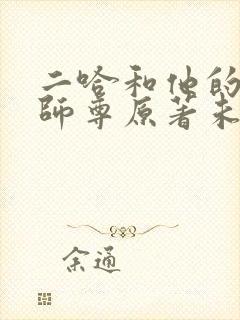 二哈和他的
師尊原著未
余通